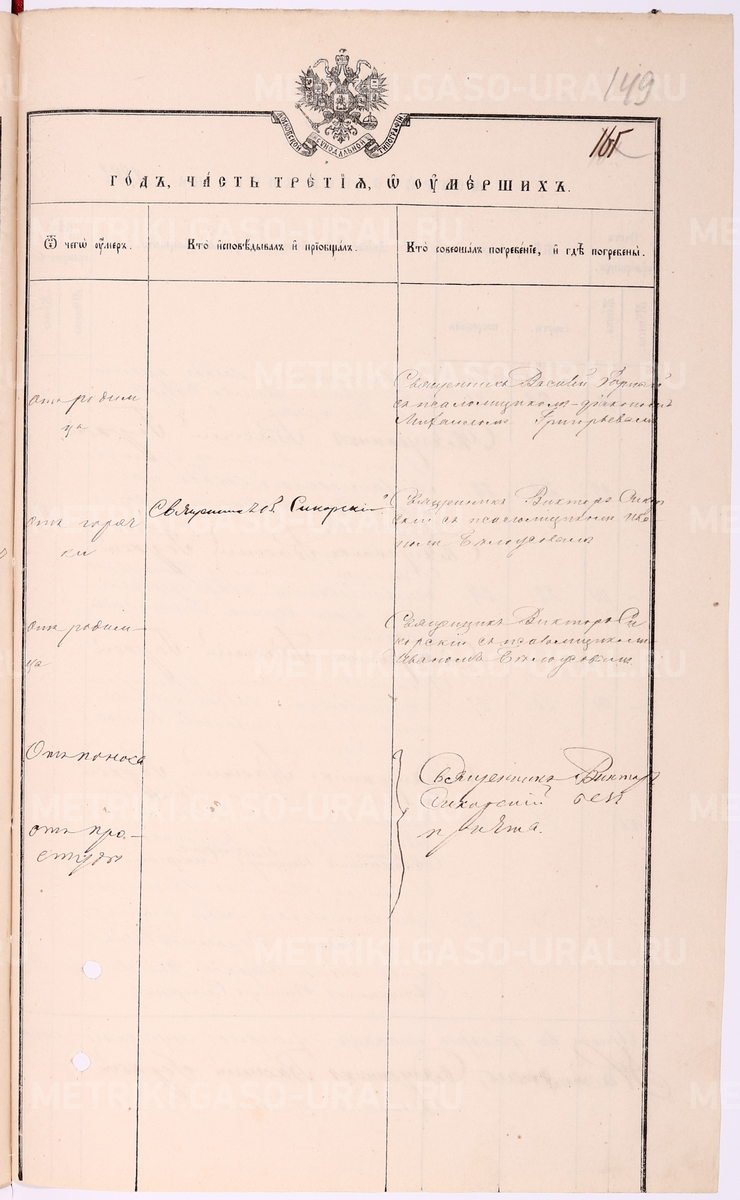 149
МОСКОВСКОЙ СѴНОДАЛЬНОЙ ТИПОГРАФІИ
ГОДЪ, ЧАСТЬ ТРЕТІЯ, Ѿ ОУМЕРШИХЪ.
Ѿ чегѡ оумеръ.
Кто исповѣдывалъ и пріобщалъ.
Кто совершалъ погребеніе, и гдѣ погребены.
отъ родим
ца
Священникъ Василій
съ псаломщикомъ-діакономъ
Михаиломъ Григорьевымъ
отъ горяч
ки
Священникъ Сикорскій
Священникъ Викторъ Сикор
скій съ псаломщикомъ Ива
номъ Бѣлоусовымъ
отъ родим-
ца
Священникъ Викторъ Си
корскій съ псаломщикомъ
Иваномъ Бѣлоусовымъ
Отъ поноса
отъ про-
студы
Священникъ Викторъ
Сикорскій безъ
причта.
METRIKI.GASO-URAL.RU